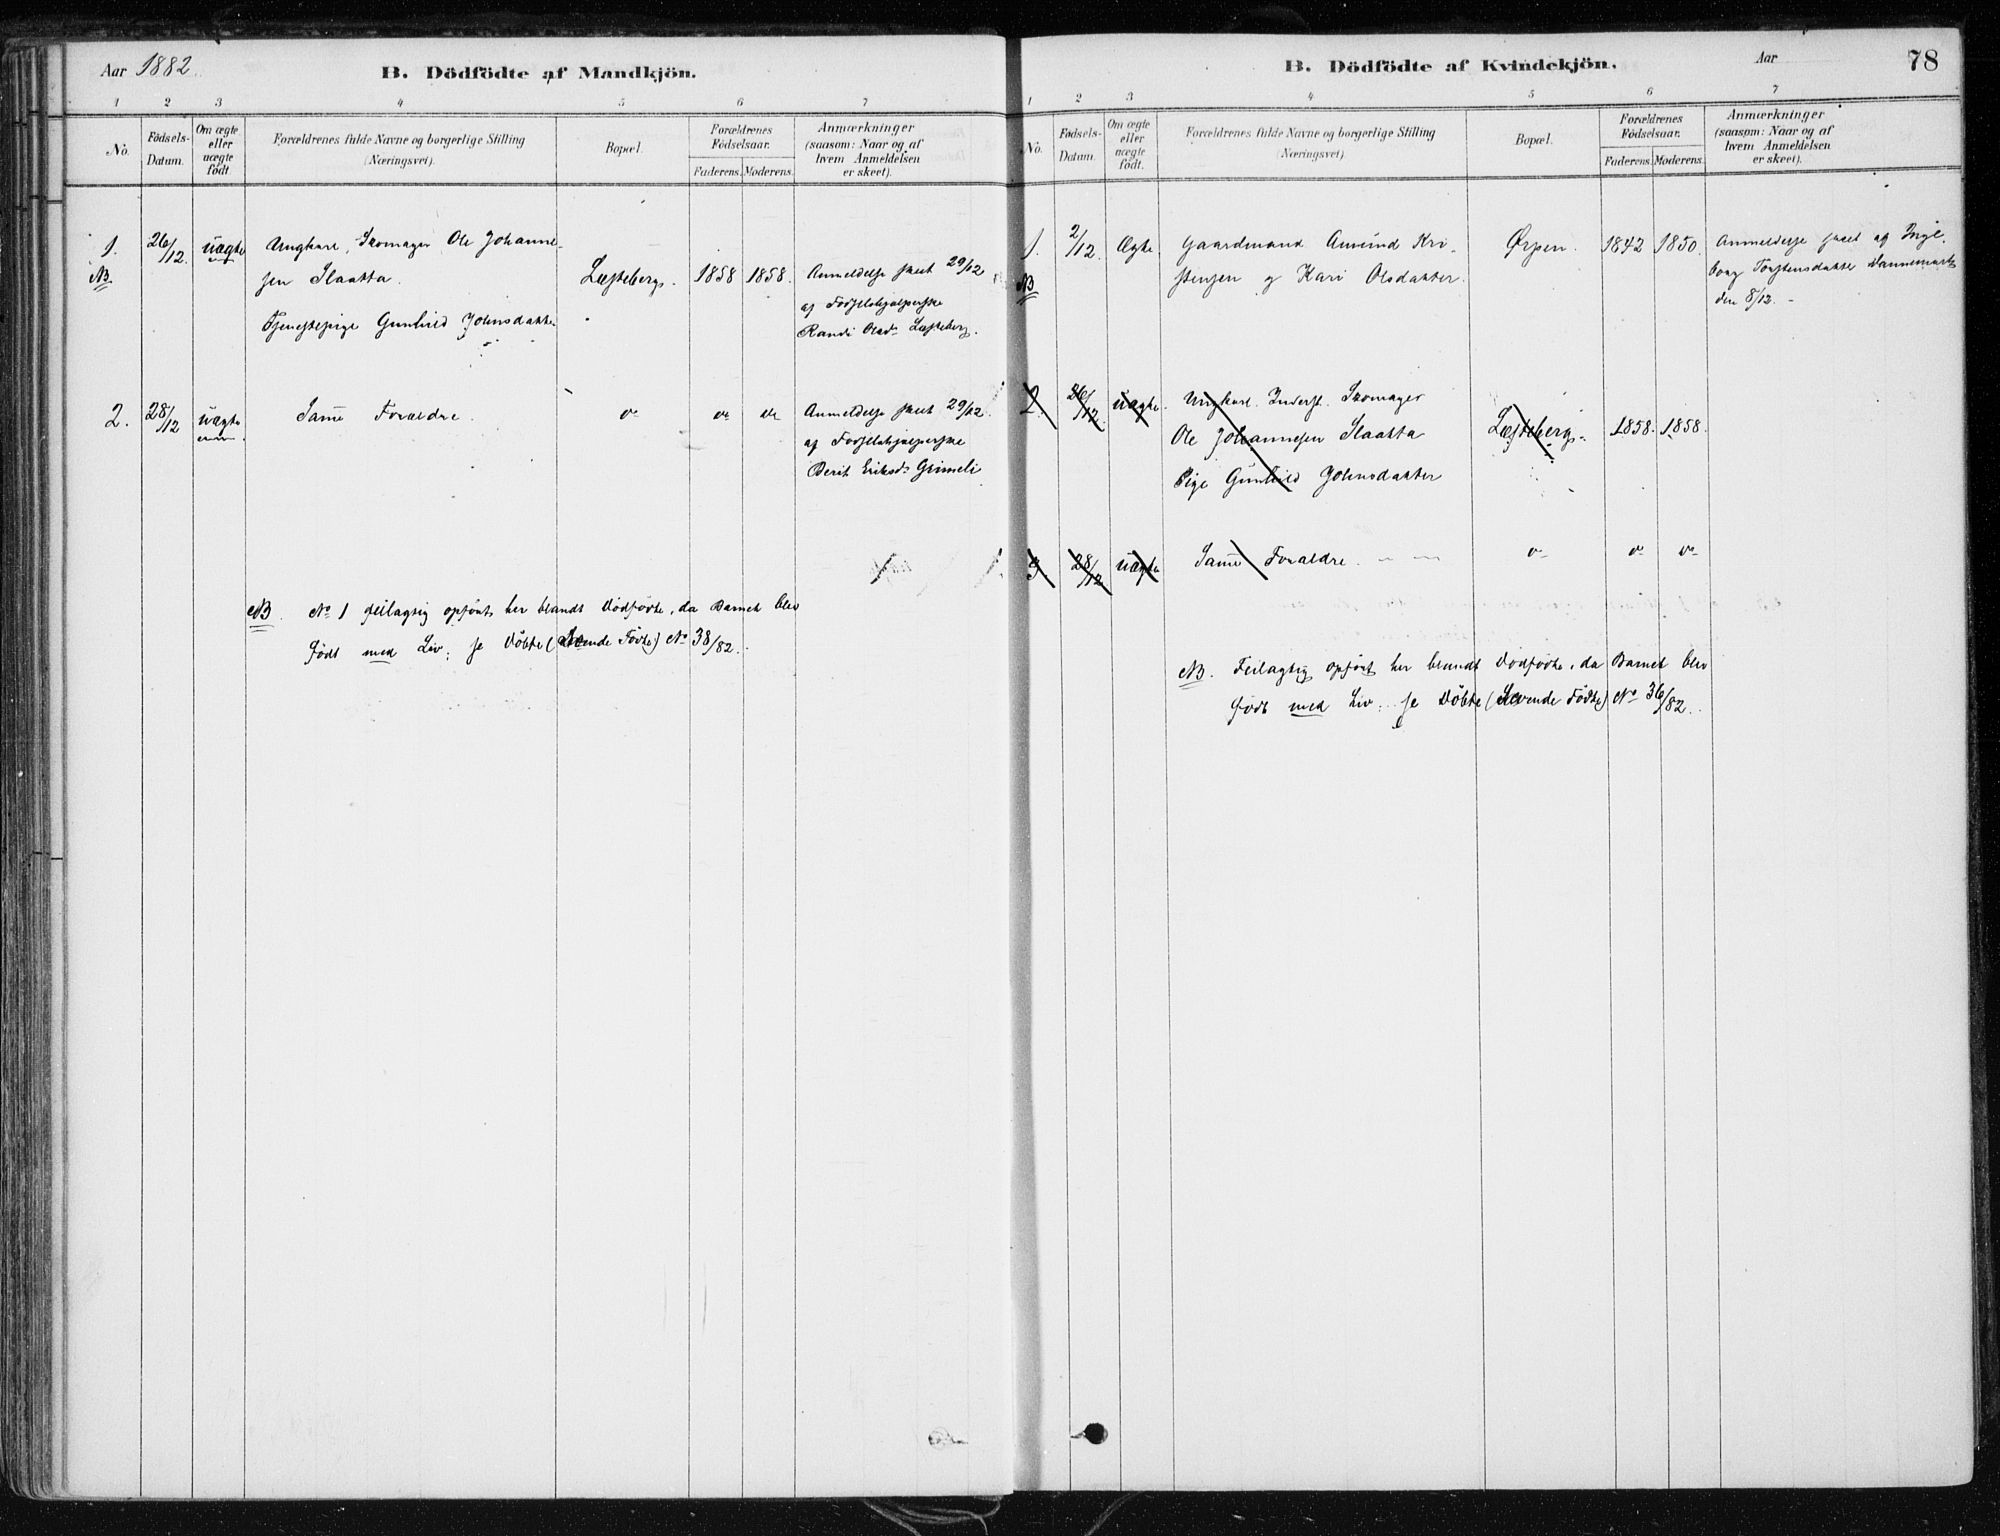 Aar 1882.
B. Dödfödte af Mandkjön.
1 2 3 4 5 6 7
No.
Födsels-
Datum.
Om ægte
eller
uægte
födt
Forældrenes fulde Navne og borgerlige Stilling
(Næringsvei).
Bopæl.
Forældrenes
Födselsaar.
Faderens. Moderens.
Anmærkninger
(saasom: Naar og af
hvem Anmeldelsen
er skeet).
1. 26/12. uægte Ungkarl, Skomager Ole Johanne-
NB. sen Slaatta. Læsteberg. 1858 1858. Anmeldelse skeet 29/12
Tjenestepige Gunhild Johnsdatter af Fødselshjælperske
Randi Olsdr Læsteberg.
2. 28/12 uægte Samme Forældre. Anmeldelse skeet 29/12.
af Fødselshjælperske
Berit Eriksdr Grimeli
NB. No 1 feilagtig opført her blandt Dödfödte, da Barnet blev
födt med Liv; se Döbte (Levende Födte) No 38/82.
B. Dödfödte af Kvindekjön.
Aar
78
1 2 3 4 5 6 7
No.
Födsels-
Datum.
Om ægte
eller
uægte
födt.
Forældrenes fulde Navne og borgerlige Stilling
(Næringsvei).
Bopæl.
Forældrenes
Födselsaar.
Faderens. Moderens.
Anmærkninger
(saasom: Naar og af
hvem Anmeldelsen
er skeet).
1. 2/12. Ægte Gaardmand Amund Kri- Ørpen. 1842 1850. Anmeldelse skeet af Inge-
NB stensen og Kari Olsdatter. borg Torstensdatter Dannemark
den 8/12. -
2. 26/12. uægte. Ungkarl. Inderst. Skomager
Ole Johannesen Slaatta Læsteberg. 1858. 1858.
Pige Gunhild Johnsdatter
3. 28/12 uægte Samme Forældre.
NB. Feilagtig opført her blandt Dödfödte, da Barnet blev
födt med Liv; se Döbte (Levende Födte) No 36/82.